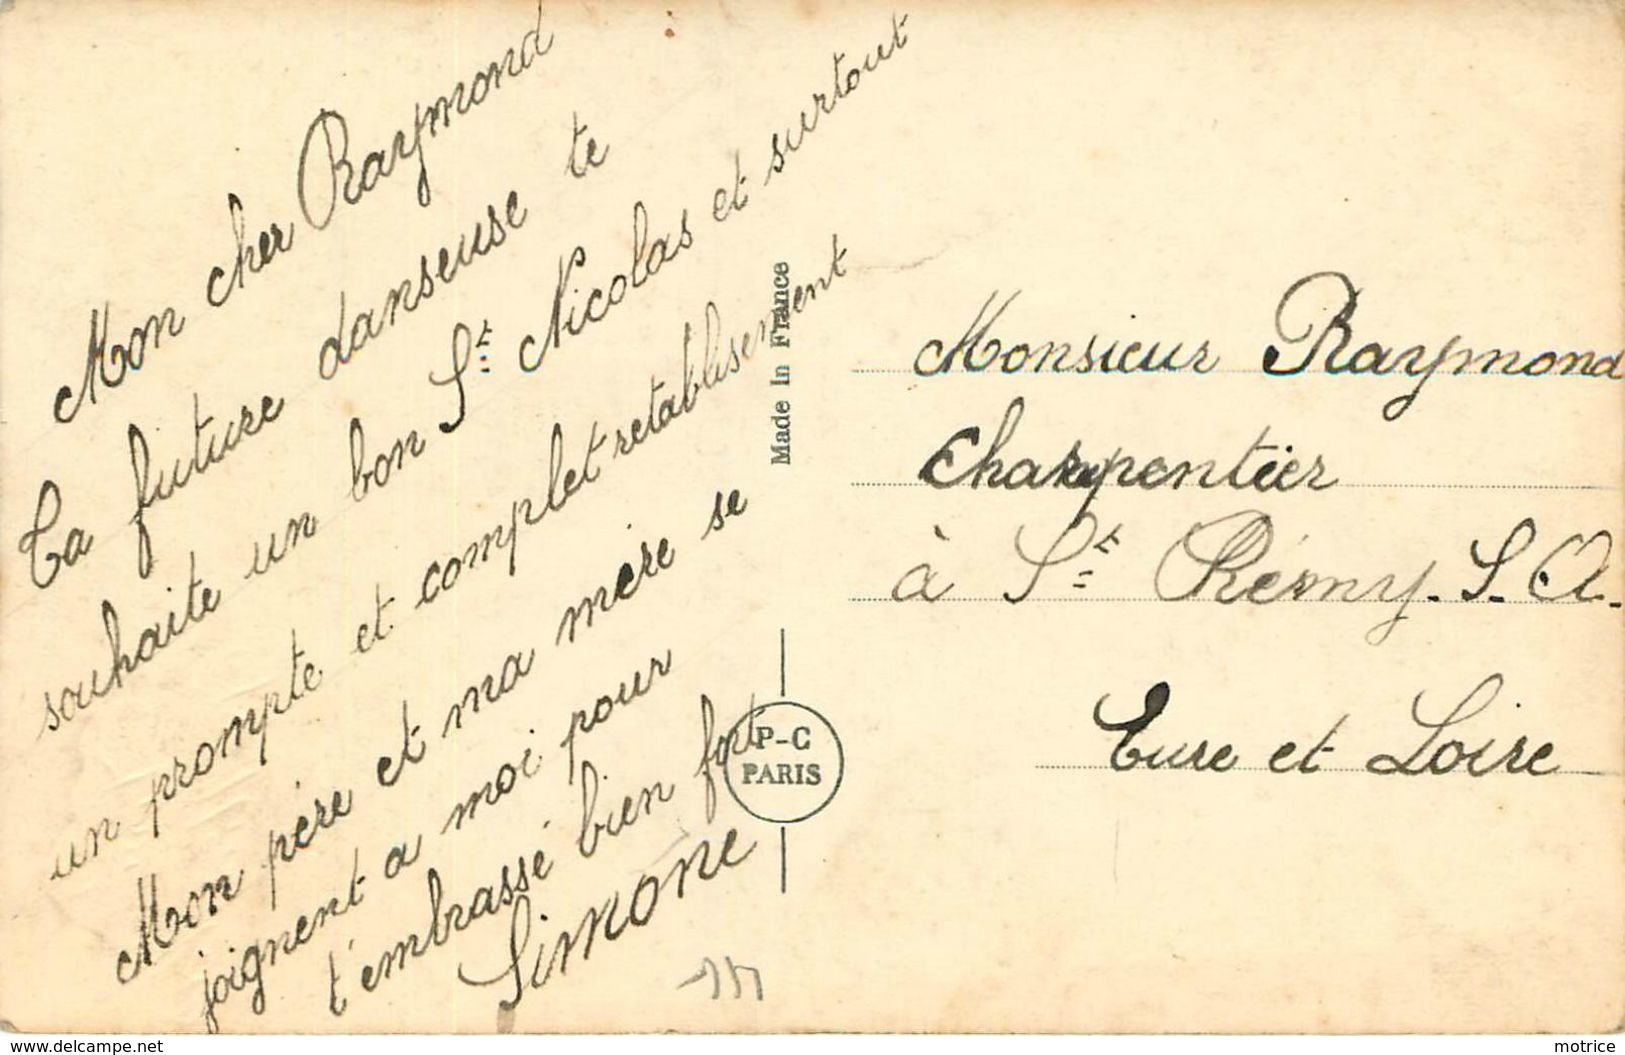 Mon cher Raymond
Ta future danseuse te
souhaite un bon St Nicolas et surtout
un prompte et complet retablisement
Mon père et ma mère se
joignent a moi pour
t'embrassé bien fort
Simone
Made in France
P-C
PARIS
Monsieur Raymond
Charpentier
à St Rémy. S. A.
Eure et Loire
www.delcampe.net
motrice